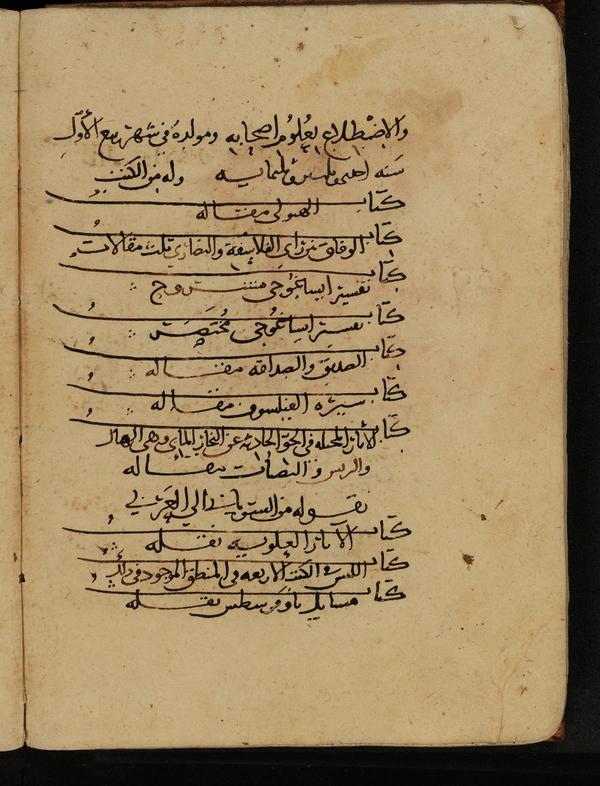 والاضطلاع بعلوم اصحابه ومولده في شهر ربيع الأول
سنه احدى وثلثين وثلثمايه وله من الكتب
كتاب الهيولى مقاله
كتاب الوفاق بين راي الفلاسفة والنصارى ثلث مقالات
كتاب تفسير ايساغوجي مشروح
كتاب تفسير ايساغوجي مختصر
كتاب الصديق والصداقه مقاله
كتاب سيرة الفيلسوف مقاله
كتاب الآثار المخيله في الجو الحادثه عن البخار المائي وهي الهاله
والقوس و الضباب مقاله
نقوله من السرياني الى العربي
كتاب الآثار العلويه نقله
كتاب اللبس في الكتب الاربعه في المنطق الموجود في ذلك
كتاب مسايل ثاوفرسطس نقله